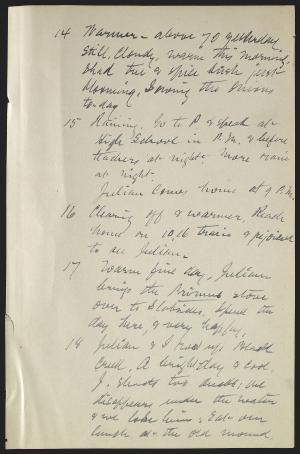 14 Warmer - above 70 yesterday
Still, cloudy, warm this morning,
Shad tree & spice bush just
blooming, Sowing the onions
to-day
15 Raining, Go to P. & speak at
High School in P.M. & before
teachers at night - More rain
at night -
Julian comes home at 9 P.M.
16 Clearing off & warmer, Reach
home on 10.16 train & rejoiced
to see Julian -
17 Warm fine day, Julian
brings the Primus stove
over to Slabsides. Spend the
day here, & very happy,
18 Julian & I row up Black
Creek, A bright day & cool.
J. shoots two ducks; one
disappears under the water
& we lose him; Eat our
lunch at the old mound.